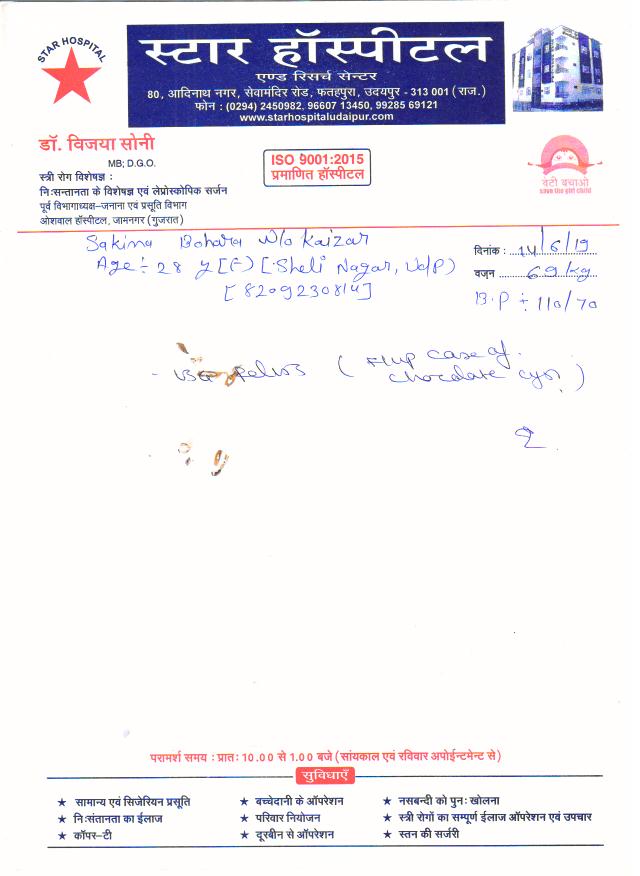 STAR HOSPITAL
स्टार हॉस्पीटल
एण्ड रिसर्च सेन्टर
80, आदिनाथ नगर, सेवामंदिर रोड, फतहपुरा, उदयपुर - 313 001 (राज.)
फोन : (0294) 2450982, 96607 13450, 99285 69121
www.starhospitaludaipur.com
डॉ. विजया सोनी
MB; D.G.O.
स्त्री रोग विशेषज्ञ :
निःसन्तानता के विशेषज्ञ एवं लेप्रोस्कोपिक सर्जन
पूर्व विभागाध्यक्ष-जनाना एवं प्रसूति विभाग
ओशवाल हॉस्पीटल, जामनगर (गुजरात)
ISO 9001:2015
प्रमाणित हॉस्पीटल
बेटी बचाओ
save the girl child
Sakina Bohara W/o Kaizar
Age ÷ 28 y [F] [Sheli Nagar, Udp)
[8209230814]
दिनांक : 14/6/19
वज़न 69 kg
B.P ÷ 110/70
- Pelvis ( F/up case of
chocolate cyst )
परामर्श समय : प्रातः 10.00 से 1.00 बजे (सांयकाल एवं रविवार अपोईन्टमेन्ट से)
सुविधाएँ
★ सामान्य एवं सिजेरियन प्रसूति ★ बच्चेदानी के ऑपरेशन ★ नसबन्दी को पुनः खोलना
★ निःसंतानता का ईलाज ★ परिवार नियोजन ★ स्त्री रोगों का सम्पूर्ण ईलाज ऑपरेशन एवं उपचार
★ कॉपर-टी ★ दूरबीन से ऑपरेशन ★ स्तन की सर्जरी